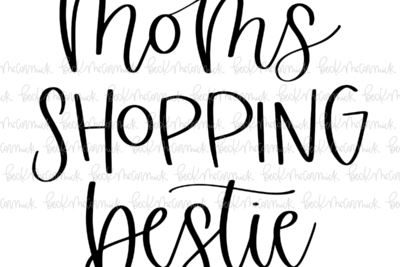 moms
SHOPPING
bestie